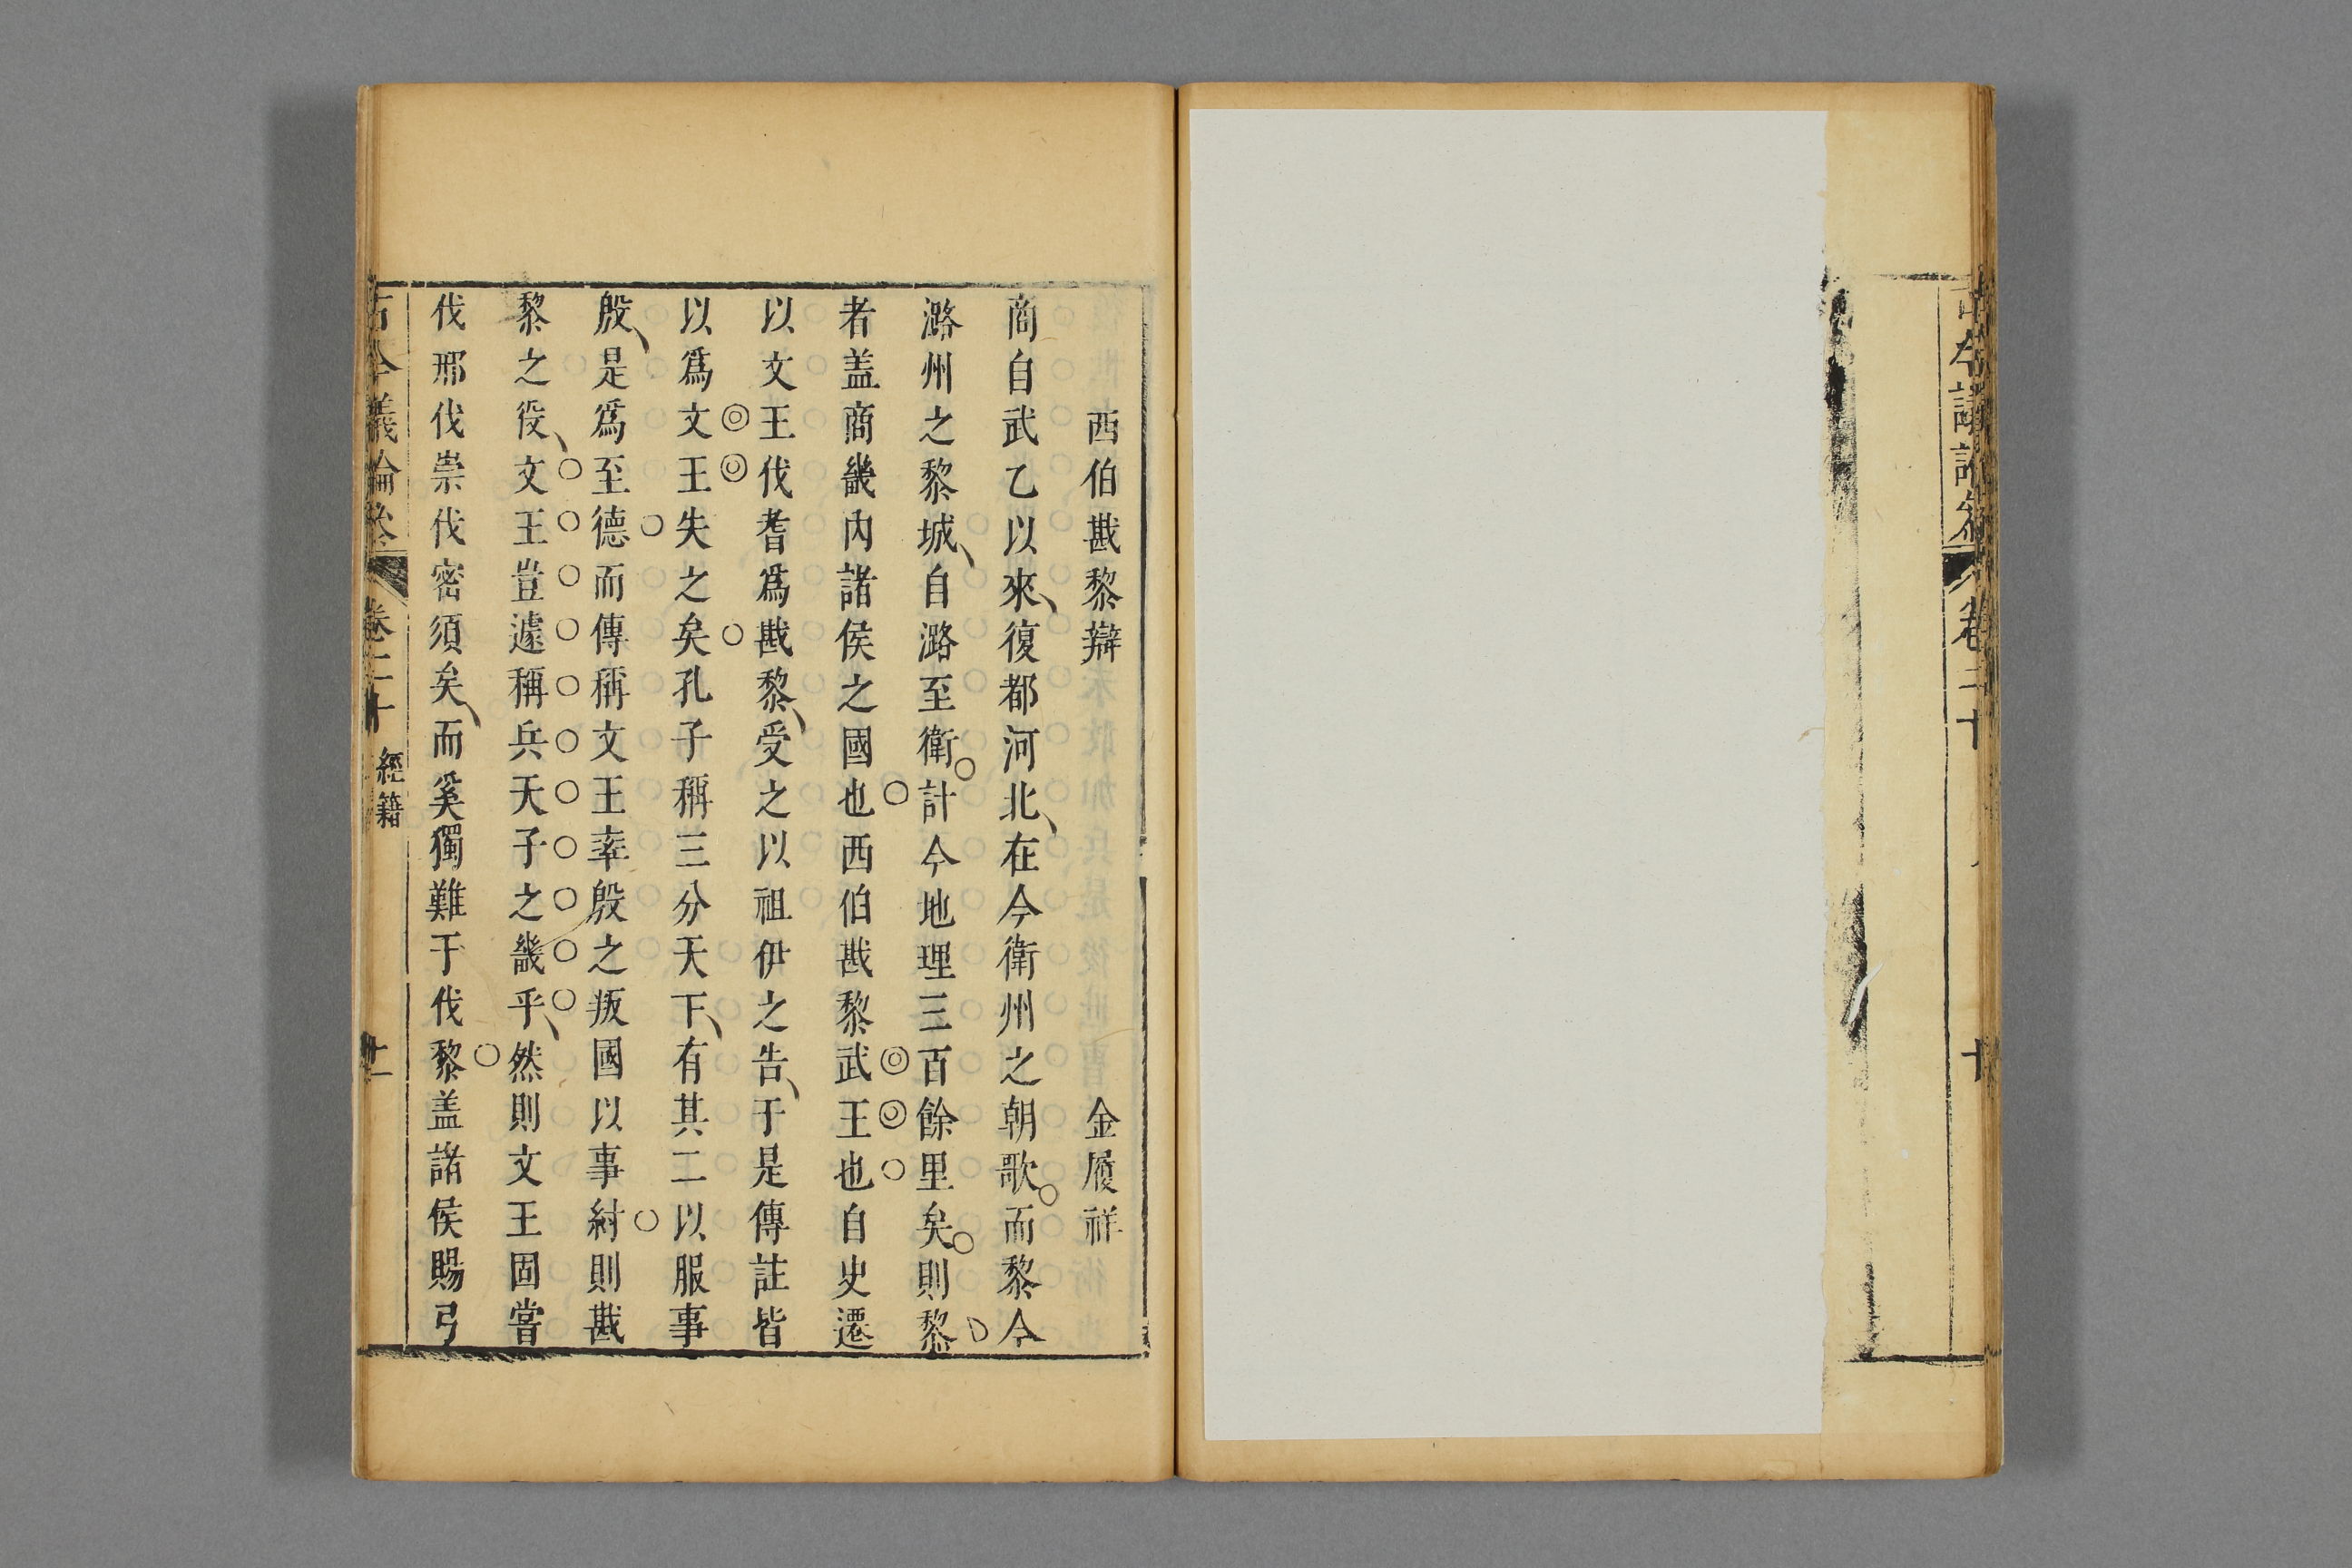 西伯戡黎辯　金履祥
商自武乙以來復都河北在今衛州之朝歌而黎今
潞州之黎城自潞至衛計今地理三百餘里矣則黎
者盖商畿內諸侯之國也西伯戡黎武王也自史遷
以文王伐耆爲戡黎受之以祖伊之告于是傳註皆
以爲文王失之矣孔子稱三分天下有其二以服事
殷是爲至德而傳稱文王率殷之叛國以事紂則戡
黎之役文王豈遽稱兵天子之畿乎然則文王固嘗
伐邘伐崇伐密須矣而奚獨難于伐黎盖諸侯賜弓
古今議論參　卷二十　經籍　十一
古今議論參　卷二十　十